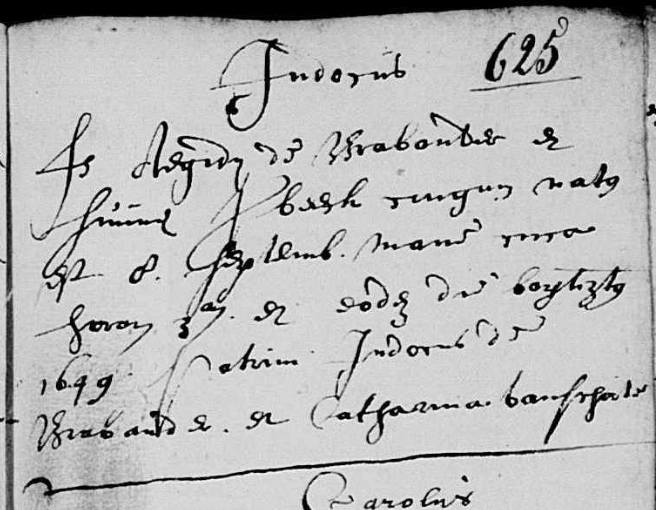 Judocus 625
fs Aegidij de Brabander et
Sbeek coniugum natus
est 8. Septemb. mane circa
horam 3am. et eodem die baptizatus
1649. Patrini Judocus de
Brabander. et Catharina van
Carolus